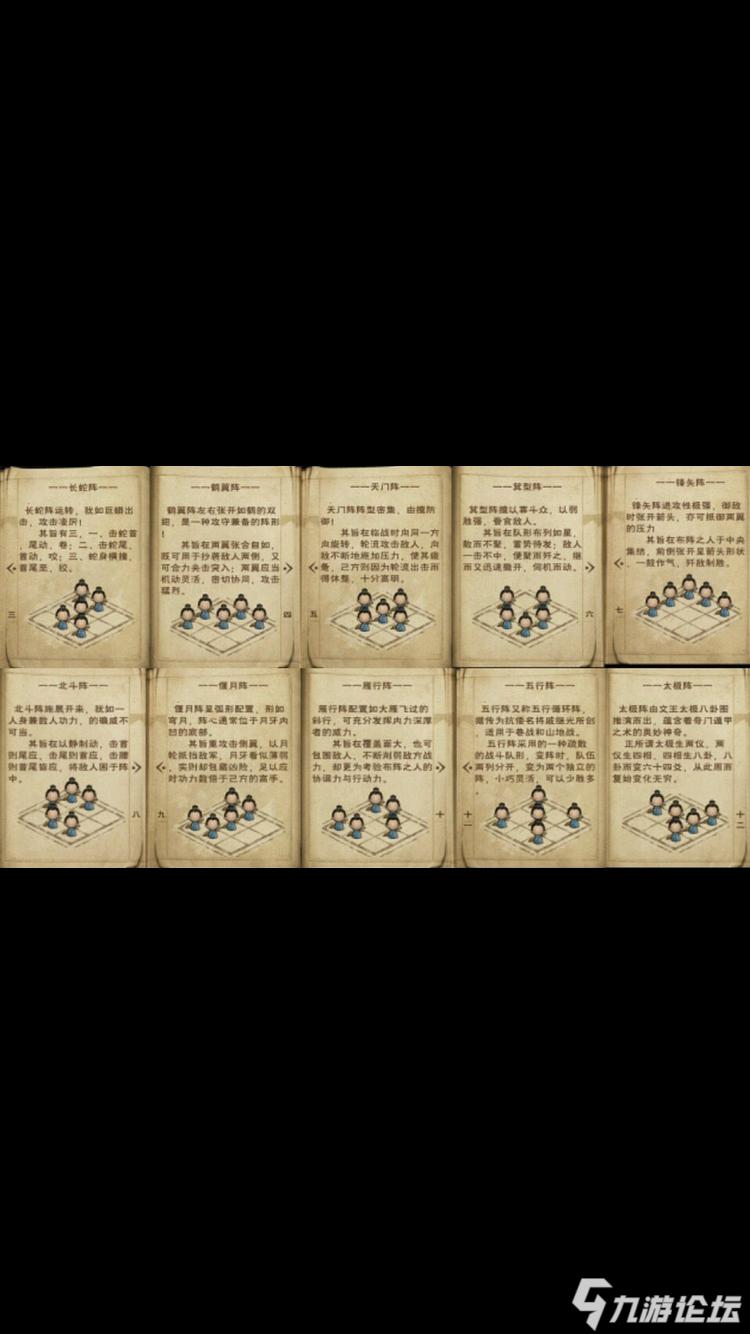 ——长蛇阵——
长蛇阵运转，犹如巨蟒出
击，攻击凌厉！
其旨有三，一、击蛇首
，尾动，卷；二、击蛇尾，
首动，咬；三、蛇身横撞，
首尾至，绞。
三
——鹤翼阵——
鹤翼阵左右张开如鹤的双
翅，是一种攻守兼备的阵形
！
其旨在两翼张合自如，
既可用于抄袭敌人两侧，又
可合力夹击突入；两翼应当
机动灵活，密切协同，攻击
猛烈。
四
——天门阵——
天门阵阵型密集，由擅防
御！
其旨在临战时向同一方
向旋转，轮流攻击敌人，向
敌不断地施加压力，使其疲
备，己方则因为轮流出击而
得休整，十分高明。
五
——箕型阵——
箕型阵擅以寡斗众，以弱
胜强，蚕食敌人。
其旨在队形布列如星，
散而不聚，蓄势待发；敌人
一击不中，便聚而歼之，继
而又迅速撤开，伺机而动。
六
——锋矢阵——
锋矢阵进攻性极强，御敌
时张开箭头，亦可抵御两翼
的压力
其旨在布阵之人于中央
集结，前侧张开呈箭头形状
，一鼓作气，歼敌制胜。
七
——北斗阵——
北斗阵施展开来，犹如一
人身兼数人功力，的确威不
可当。
其旨在以静制动，击首
则尾应，击尾则首应，击腰
则首尾皆应，将敌人困于阵
中。
八
——偃月阵——
偃月阵呈弧形配置，形如
弯月，阵心通常位于月牙内
凹的底部。
其旨重攻击侧翼，以月
轮抵挡敌军，月牙看似薄弱
，实则却包藏凶险，足以应
对功力数倍于己方的高手。
九
——雁行阵——
雁行阵配置如大雁飞过的
斜行，可充分发挥内力深厚
者的威力。
其旨在覆盖面大，也可
包围敌人，不断削弱敌方战
力，却更为考验布阵之人的
协调力与行动力。
十
——五行阵——
五行阵又称五行循环阵，
据传为抗倭名将戚继光所创
，适用于巷战和山地战。
五行阵采用的一种疏散
的战斗队形，变阵时，队伍
两列分开，变为两个独立的
阵，小巧灵活，可以少胜多
。
十一
——太极阵——
太极阵由文王太极八卦图
推演而出，蕴含着奇门遁甲
之术的奥妙神奇。
正所谓太极生两仪，两
仪生四相，四相生八卦，八
卦而变六十四爻，从此周而
复始变化无穷。
十二
九游论坛